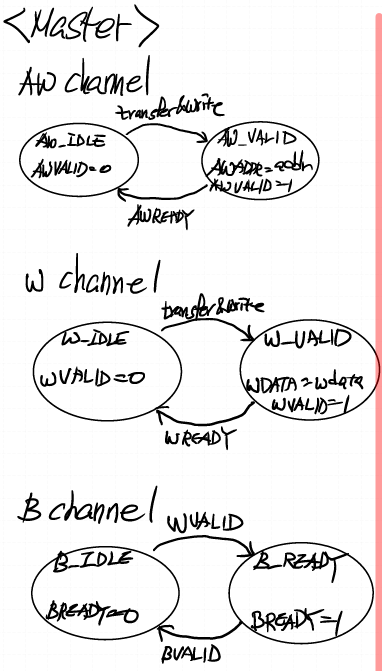 <Master>
AW channel
transfer&write
AW_IDLE
AWVALID=0
AW_VALID
AWADDR=addr
AWVALID=1
AWREADY
W channel
transfer&write
W_IDLE
WVALID=0
W_VALID
WDATA=wdata
WVALID=1
WREADY
B channel
WVALID
B_IDLE
BREADY=0
B_READY
BREADY=1
BVALID